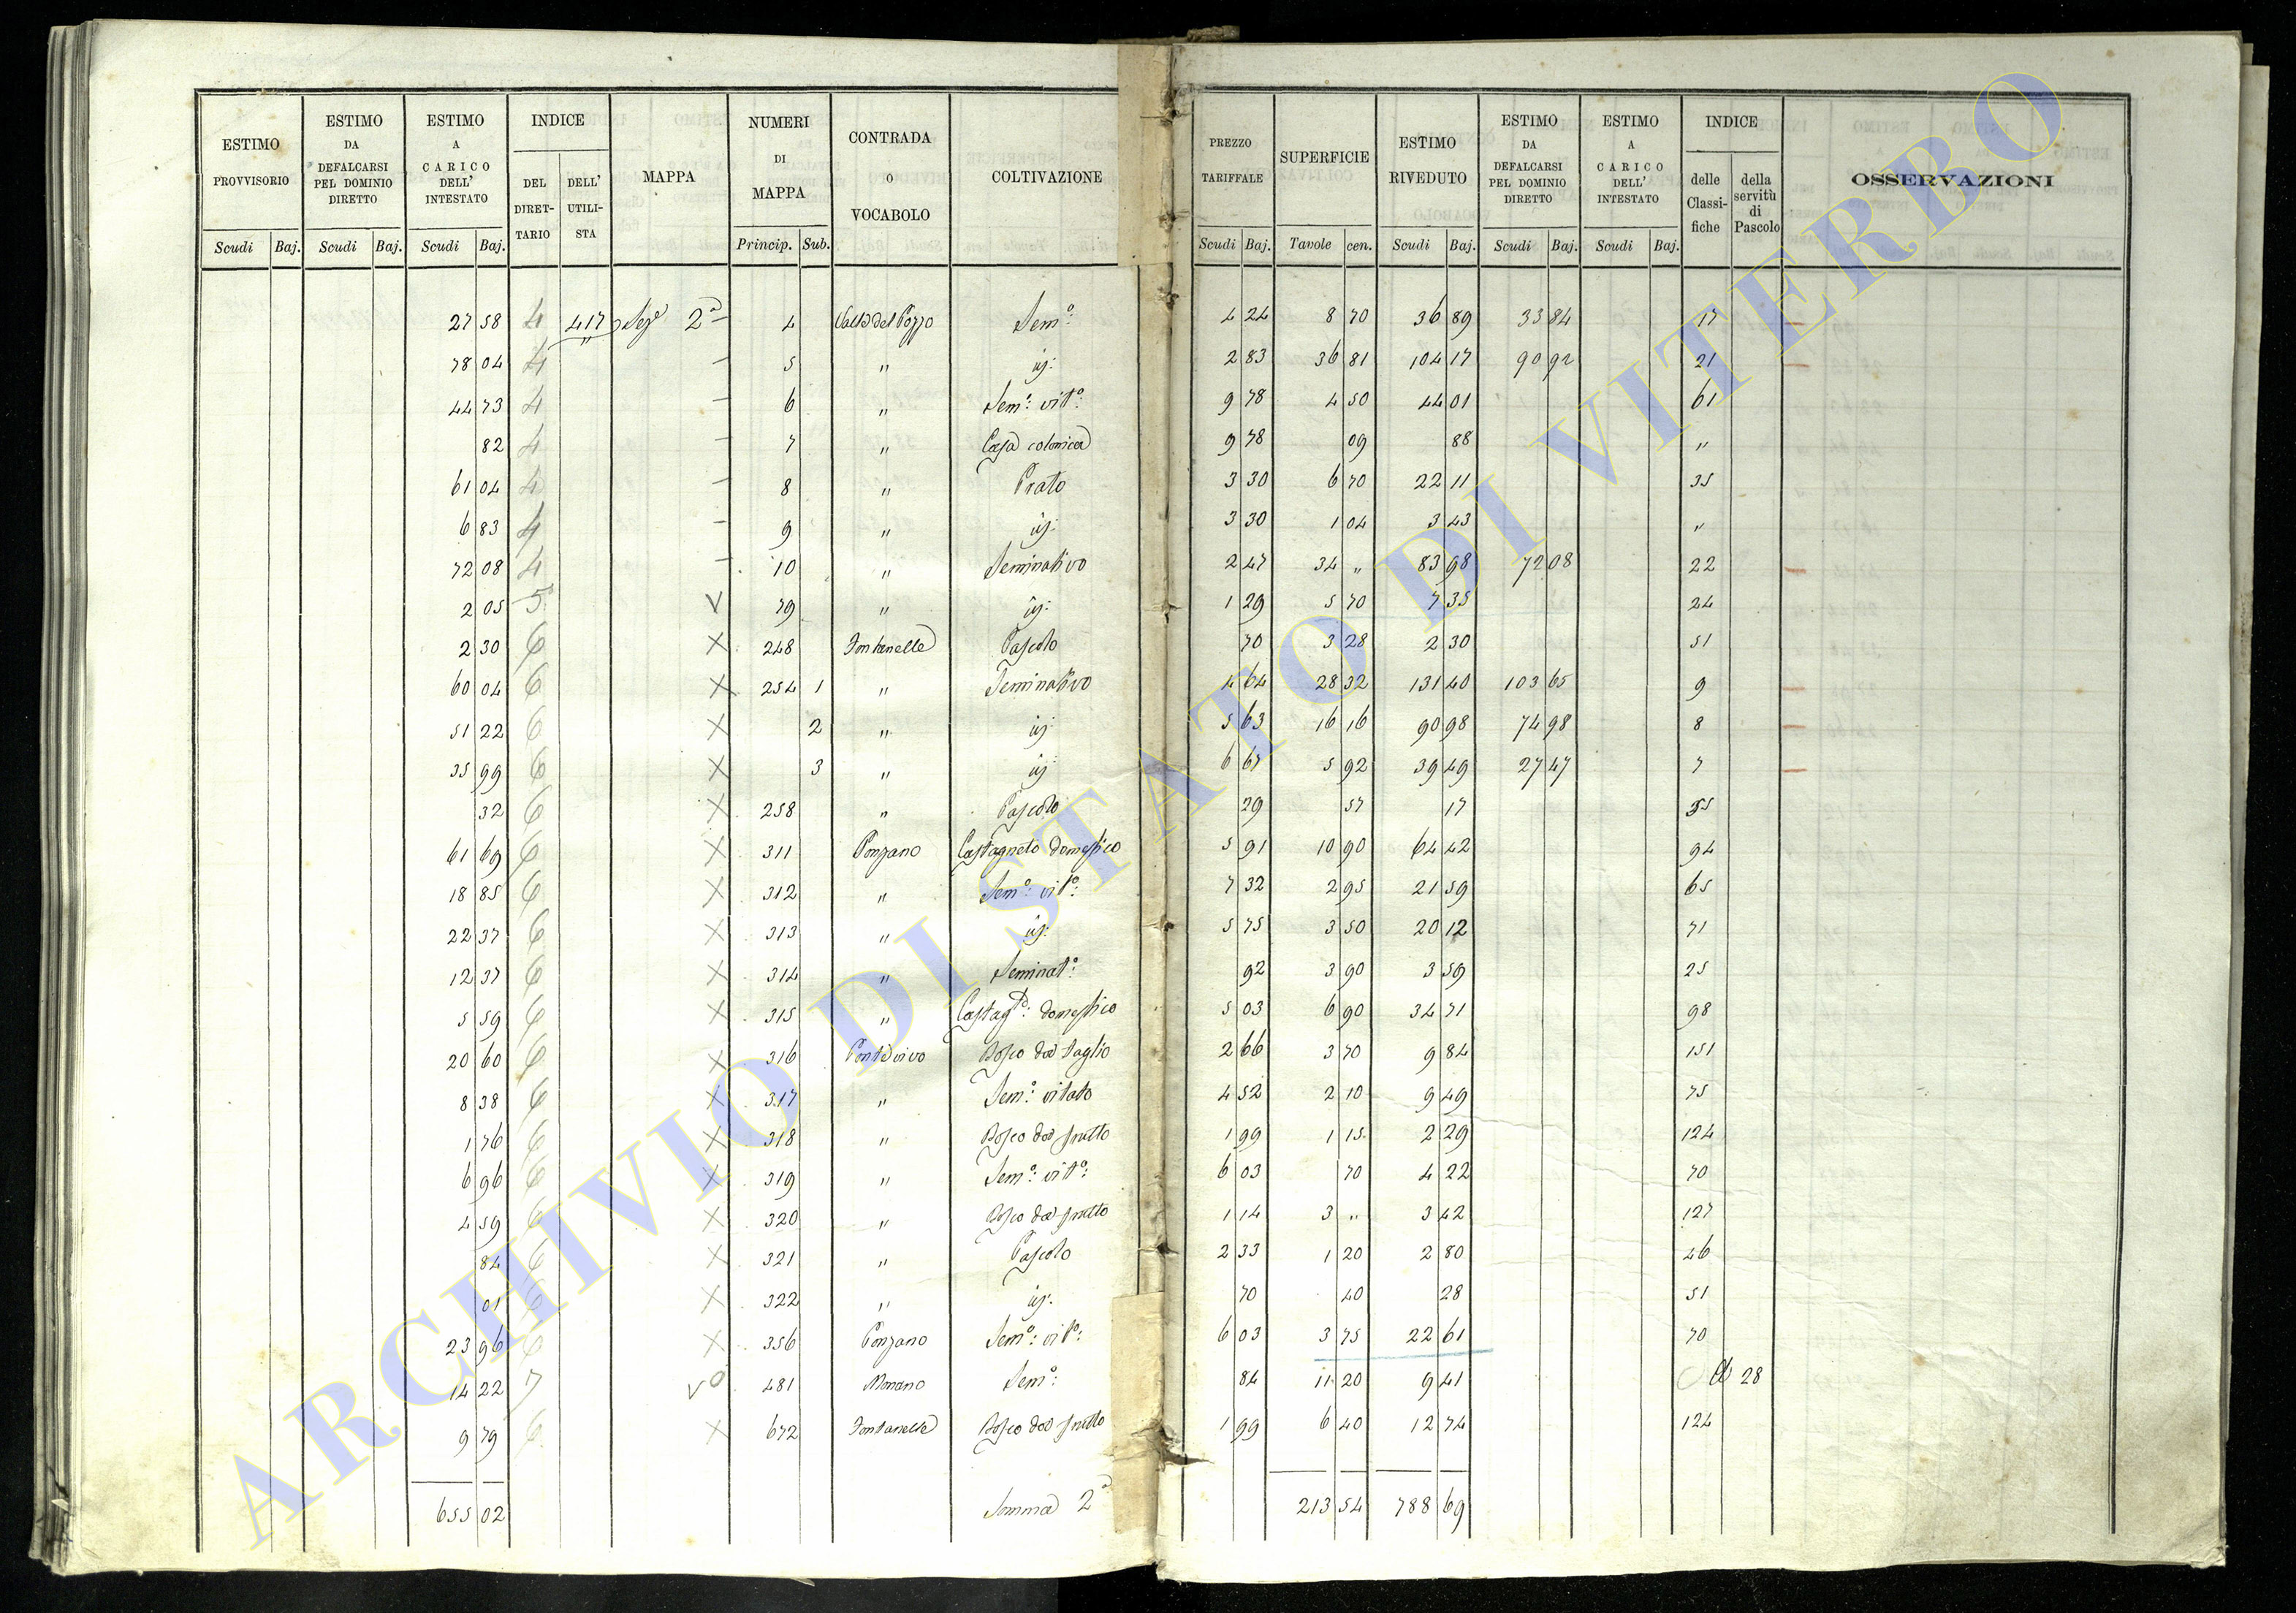 ESTIMO PROVVISORIO | ESTIMO DA DEFALCARSI PEL DOMINIO DIRETTO | ESTIMO A CARICO DELL' INTESTATO | INDICE DEL DIRET-TARIO | DELL' UTILI-STA | MAPPA | NUMERI DI MAPPA | CONTRADA O VOCABOLO | COLTIVAZIONE | PREZZO TARIFFALE | SUPERFICIE | ESTIMO RIVEDUTO | ESTIMO DA DEFALCARSI PEL DOMINIO DIRETTO | ESTIMO A CARICO DELL' INTESTATO | INDICE delle Classi-fiche | della servitù di Pascolo | OSSERVAZIONI
Scudi Baj. | Scudi Baj. | Scudi Baj. | Princip. Sub. | Scudi Baj. | Tavole cen. | Scudi Baj. | Scudi Baj. | Scudi Baj.
27 58 4 417 Sez.e 2a – 4 Valle del Pozzo Sem.o: 4 24 8 70 36 89 33 84 17 –
78 04 4 " – 5 " id: 2 83 36 81 104 17 90 92 21 –
44 73 4 – 6 " Sem.o: vit.o: 9 78 4 50 44 01 61
82 4 – 7 " Casa colonica 9 78 09 88 "
61 04 4 – 8 " Prato 3 30 6 70 22 11 35
6 83 4 – 9 " id: 3 30 1 04 3 43 "
72 08 4 – 10 " Seminativo 2 47 34 " 83 98 72 08 22 –
2 05 5 V 79 " id: 1 29 5 70 7 35 24
2 30 6 X 248 Fontanelle Pascolo 70 3 28 2 30 51
60 04 6 X 254 1 " Seminativo 4 64 28 32 131 40 103 65 9 –
51 22 6 X 2 " id: 5 63 16 16 90 98 74 98 8 –
35 99 6 X 3 " id: 6 67 5 92 39 49 27 47 7 –
32 6 X 258 " Pascolo 29 57 17 55
61 69 6 X 311 Ponzano Castagneto domestico 5 91 10 90 64 42 94
18 85 6 X 312 " Sem.o: vit.o: 7 32 2 95 21 59 65
22 37 6 X 313 " id: 5 75 3 50 20 12 71
12 37 6 X 314 " Seminat.o: 92 3 90 3 59 25
5 59 6 X 315 " Castag.to: domestico 5 03 6 90 34 71 98
20 60 6 X 316 Bosco da taglio 2 66 3 70 9 84 151
8 38 6 X 317 " Sem.o: vitato 4 52 2 10 9 49 75
1 76 6 X 318 " Bosco da frutto 1 99 1 15 2 29 124
6 96 6 X 319 " Sem.o: vit.o: 6 03 70 4 22 70
4 59 6 X 320 " Bosco da frutto 1 14 3 " 3 42 127
84 6 X 321 " Pascolo 2 33 1 20 2 80 46
01 6 X 322 " id: 70 40 28 51
23 96 6 X 356 Ponzano Sem.o: vit.o: 6 03 3 75 22 61 70
14 22 7 V 481 Sem.o: 84 11 20 9 41 28
9 79 6 X 672 Fontanelle Bosco da frutto 1 99 6 40 12 74 124
655 02 Somma 2a 213 54 788 69
ARCHIVIO DI STATO DI VITERBO